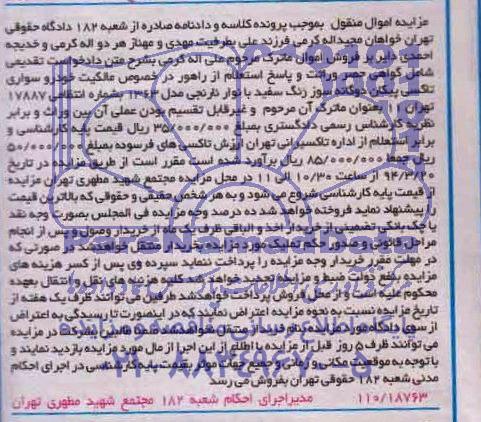 مزایده اموال منقول بموجب پرونده کلاسه و دادنامه صادره از شعبه ۱۸۲ دادگاه حقوقی
تهران خواهان مجیداله کرمی فرزند علی بطرفیت مهدی و مهناز هر دو اله کرمی و خدیجه
احمدی دایر بر فروش اموال ماترک مرحوم علی اله کرمی بشرح متن دادخواست تقدیمی
شامل گواهی حصر وراثت و پاسخ استعلام از راهور در خصوص مالکیت خودرو سواری
تاکسی پیکان دوگانه سوز رنگ سفید با نوار نارنجی مدل ۱۳۶۳ بشماره انتظامی ۱۷۸۸۷
تهران بعنوان ماترک آن مرحوم و غیرقابل تقسیم بودن عملی آن بین وراث و برابر
نظریه کارشناس رسمی دادگستری بمبلغ ۳۵/۰۰۰/۰۰۰ ریال قیمت پایه کارشناسی و
برابر استعلام از اداره تاکسیرانی تهران ارزش تاکسی های فرسوده بمبلغ ۵۰/۰۰۰/۰۰۰
ریال جمعا ۸۵/۰۰۰/۰۰۰ ریال برآورد شده است مقرر است از طریق مزایده در تاریخ
۹۴/۳/۲۰ از ساعت ۱۰/۳۰ الی ۱۱ در محل مزایده مجتمع شهید مطهری تهران مزایده
از قیمت پایه کارشناسی شروع می شود و به هر شخص حقیقی و حقوقی که بالاترین قیمت
را پیشنهاد نماید فروخته خواهد شد ده درصد وجه مزایده فی المجلس بصورت وجه نقد
یا چک بانکی تضمینی از خریدار اخذ و الباقی ظرف یک ماه از خریدار وصول و پس از انجام
مراحل قانونی و صدور حکم تملیک مورد مزایده بخریدار منتقل خواهد شد در صورتی که
در مهلت مقرر خریدار وجه مزایده را پرداخت ننماید سپرده وی پس از کسر هزینه های
مزایده بنفع دولت ضبط و مزایده تجدید خواهد شد کلیه هزینه های نقل و انتقال بعهده
محکوم علیه است و از محل فروش پرداخت خواهد شد طرفین می توانند ظرف یک هفته از
تاریخ مزایده نسبت به نحوه مزایده اعتراض نمایند که در اینصورت تا رسیدگی به اعتراض
از سوی دادگاه مورد مزایده بنام خریدار منتقل نخواهد شد ضمنا طالبین شرکت در مزایده
می توانند ظرف ۵ روز قبل از مزایده با اطلاع از این اجرا از مال مورد مزایده بازدید نمایند و
با توجه به موقعیت مکانی و زمانی و جمیع جهات موثر بقیمت پایه کارشناسی در اجرای احکام
مدنی شعبه ۱۸۲ حقوقی تهران بفروش می رسد
۱۱۰/۱۸۷۶۳ مدیر اجرای احکام شعبه ۱۸۲ مجتمع شهید مطهری تهران